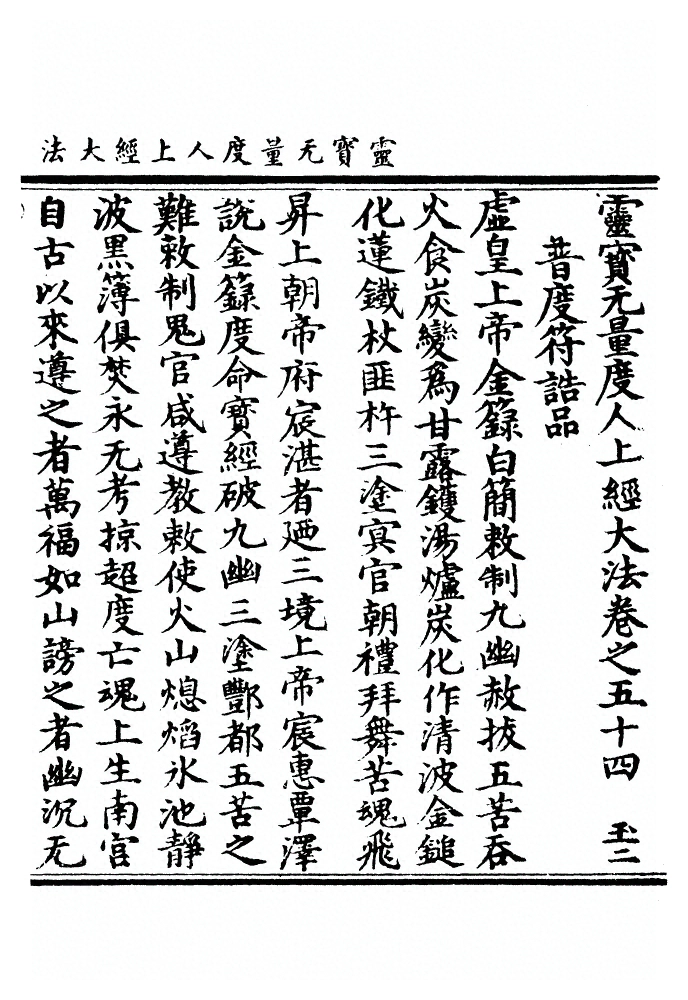 靈寶无量度人上經大法
靈寶无量度人上經大法卷之五十四　玉二
普度符誥品
虛皇上帝金籙白簡敕制九幽赦拔五苦吞
火食炭變為甘露鑊湯爐炭化作清波金鎚
化蓮鐵杖匪杵三塗冥官朝禮拜舞苦魂飛
昇上朝帝府宸湛者廼三境上帝宸惠覃澤
說金籙度命寶經破九幽三塗酆都五苦之
難敕制鬼官咸遵教敕使火山熄熖氷池靜
波黑簿俱焚永无考掠超度亡魂上生南宮
自古以來遵之者萬福如山謗之者幽沉无